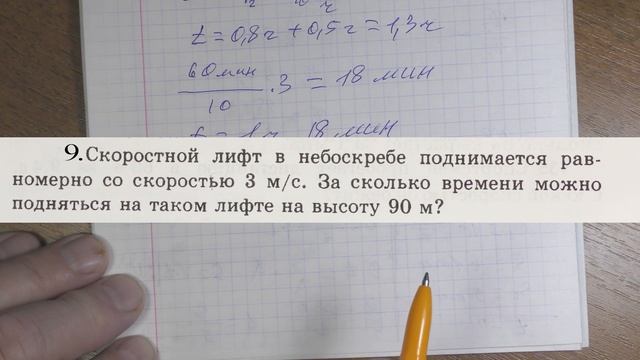 t = 0,8ч + 0,5ч = 1,3ч
60мин/10 · 3 = 18 мин
18 мин
9. Скоростной лифт в небоскребе поднимается рав-
номерно со скоростью 3 м/с. За сколько времени можно
подняться на таком лифте на высоту 90 м?